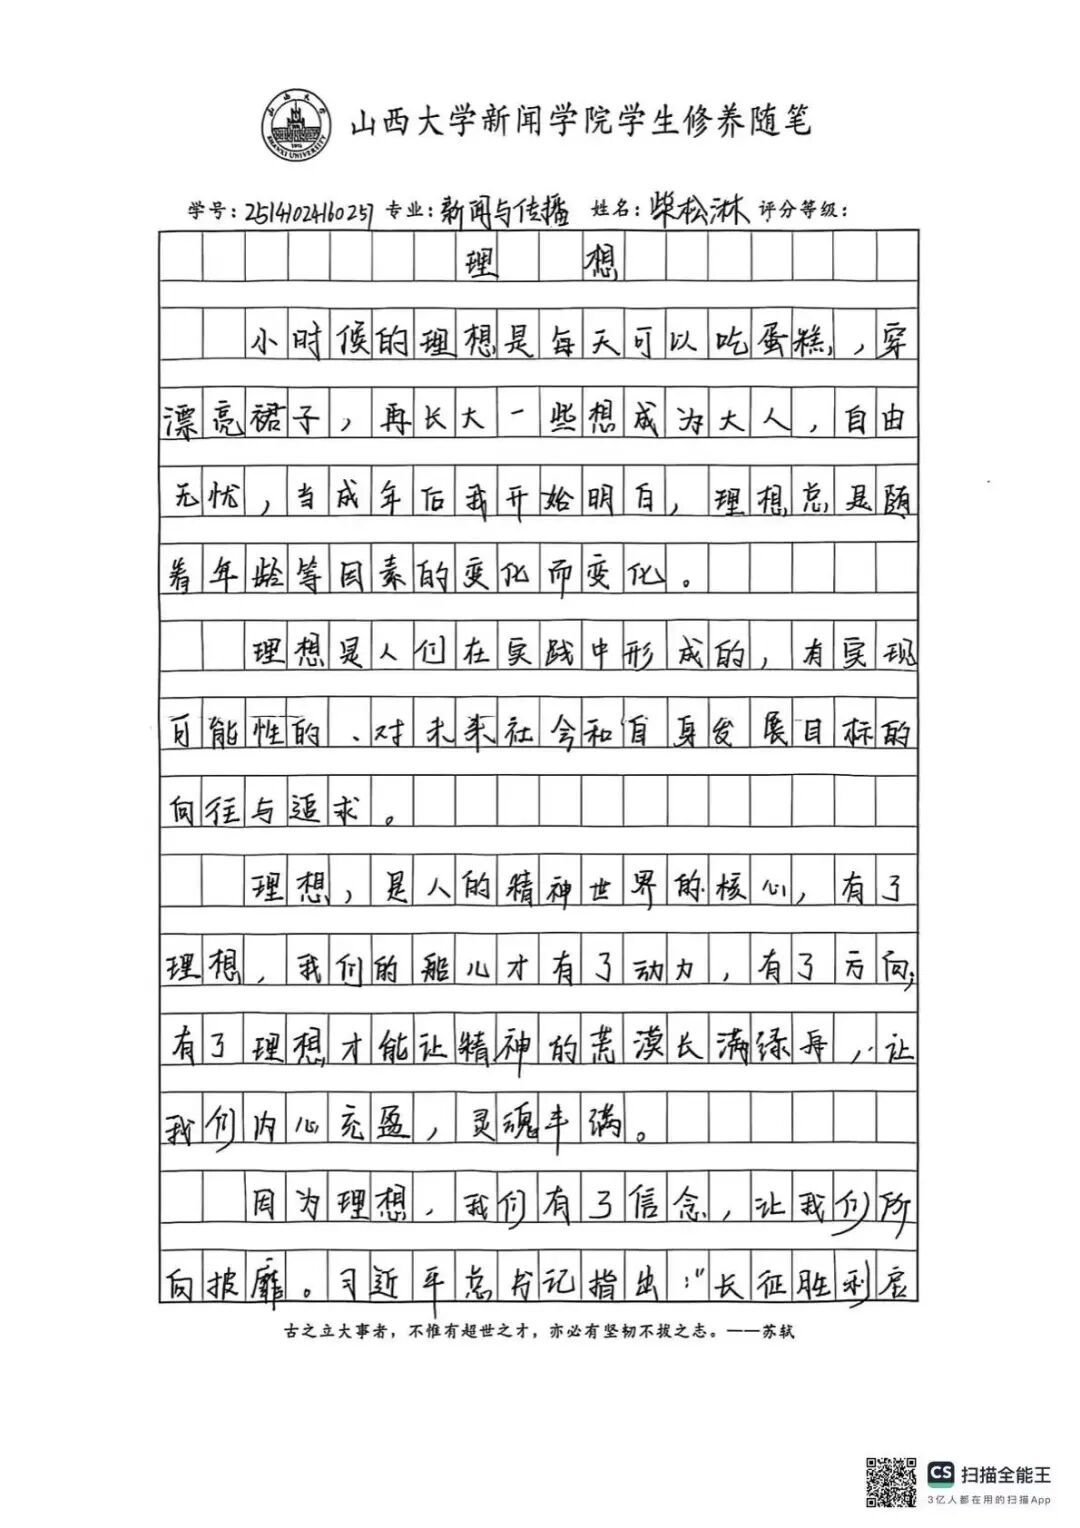 山西大学
SHANXI UNIVERSITY
1902
山西大学新闻学院学生修养随笔
学号:25141024160257 专业:新闻与传播 姓名:柴松淋 评分等级:
理想
小时候的理想是每天可以吃蛋糕,穿
漂亮裙子,再长大一些想成为大人,自由
无忧,当成年后我开始明白,理想总是随
着年龄等因素的变化而变化。
理想是人们在实践中形成的,有实现
可能性的、对未来社会和自身发展目标的
向往与追求。
理想,是人的精神世界的核心,有了
理想,我们的船儿才有了动力,有了方向;
有了理想才能让精神的荒漠长满绿舟,让
我们内心充盈,灵魂丰满。
因为理想,我们有了信念,让我们所
向披靡。习近平总书记指出:“长征胜利启
古之立大事者,不惟有超世之才,亦必有坚韧不拔之志。——苏轼
CS 扫描全能王
3亿人都在用的扫描App